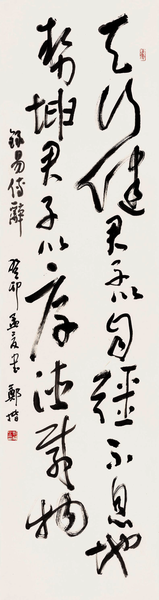 天行健君子以自强不息地
势坤君子以厚德载物
録易傳辭 癸卯孟夏書 鄭楷